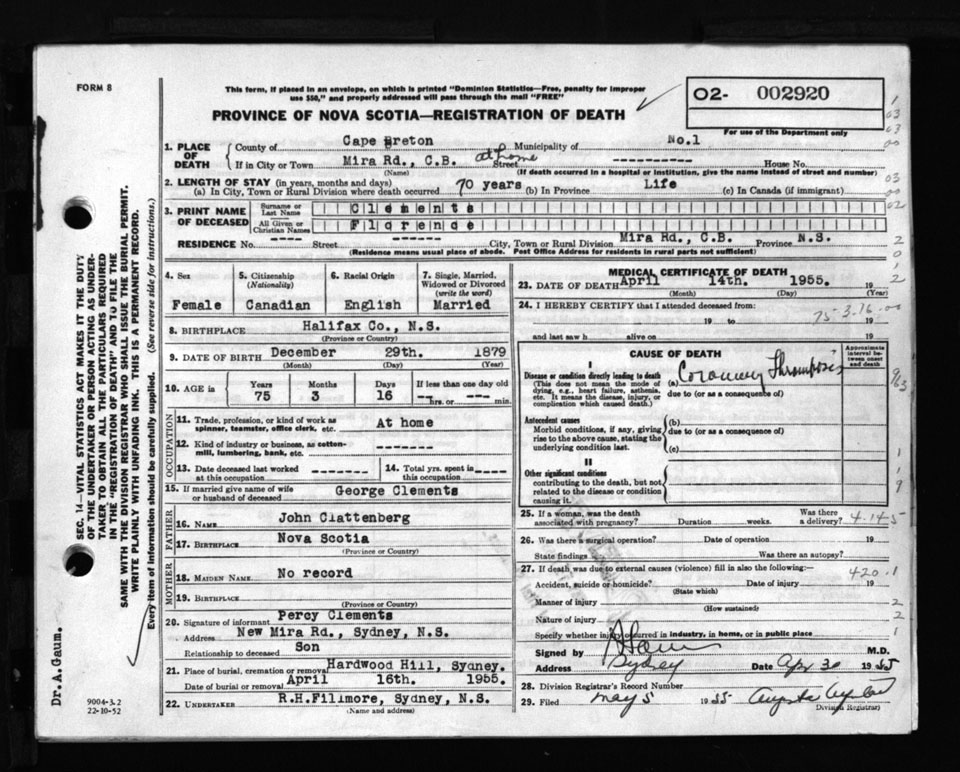 FORM 8
This form, if placed in an envelope, on which is printed "Dominion Statistics—Free, penalty for improper
use $50," and properly addressed will pass through the mail "FREE"
PROVINCE OF NOVA SCOTIA—REGISTRATION OF DEATH
O2- 002920
For use of the Department only
1. PLACE OF DEATH
County of Cape Breton Municipality of No.1
If in City or Town Mira Rd., C.B. at home Street ----------- House No.
(Name) (If death occurred in a hospital or institution, give the name instead of street and number)
2. LENGTH OF STAY (in years, months and days)
(a) In City, Town or Rural Division where death occurred 70 years (b) In Province Life (c) In Canada (if immigrant)
3. PRINT NAME OF DECEASED
Surname or Last Name Clements
All Given or Christian Names Florence
RESIDENCE No. ----- Street ------- City, Town or Rural Division Mira Rd., C.B. Province N.S.
(Residence means usual place of abode. Post Office Address for residents in rural parts not sufficient)
4. Sex
Female
5. Citizenship (Nationality)
Canadian
6. Racial Origin
English
7. Single, Married, Widowed or Divorced (write the word)
Married
8. BIRTHPLACE Halifax Co., N.S.
(Province or Country)
9. DATE OF BIRTH December 29th. 1879
(Month) (Day) (YEAR)
10. AGE IN Years Months Days If less than one day old
75 3 16 --- hrs. or --- min.
OCCUPATION
11. Trade, profession, or kind of work as spinner, teamster, office clerk, etc. At home
12. Kind of industry or business, as cotton-mill, lumbering, bank, etc. -------
13. Date deceased last worked at this occupation -------
14. Total yrs. spent in this occupation -----
15. If married give name of wife or husband of deceased George Clements
FATHER
16. NAME John Clattenberg
17. BIRTHPLACE Nova Scotia
(Province or Country)
MOTHER
18. MAIDEN NAME No record
19. BIRTHPLACE
(Province or Country)
20. Signature of informant Percy Clements
Address New Mira Rd., Sydney, N.S.
Relationship to deceased Son
21. Place of burial, cremation or removal Hardwood Hill, Sydney.
Date of burial or removal April 16th. 1955.
22. UNDERTAKER R.H.Fillmore, Sydney, N.S.
(Name and address)
MEDICAL CERTIFICATE OF DEATH
23. DATE OF DEATH April 14th. 1955. 19
(Month) (Day) (Year)
24. I HEREBY CERTIFY that I attended deceased from:
19 to 19
75-3-16
and last saw h alive on 19
CAUSE OF DEATH
Approximate interval between onset and death
I
Disease or condition directly leading to death (a) Coronary Thrombosis
(This does not mean the mode of dying, e.g., heart failure, asthenia, etc. It means the disease, injury, or complication which caused death.)
due to (or as a consequence of)
Antecedent causes
Morbid conditions, if any, giving rise to the above cause, stating the underlying condition last.
(b)
due to (or as a consequence of)
(c)
II
Other significant conditions
contributing to the death, but not related to the disease or condition causing it.
25. If a woman, was the death associated with pregnancy? Duration weeks. Was there a delivery? 4-14-5
26. Was there a surgical operation? Date of operation 19
State findings Was there an autopsy?
27. If death was due to external causes (violence) fill in also the following: 420.1
Accident, suicide or homicide? Date of injury 19
(State which)
Manner of injury
(How sustained)
Nature of injury
Specify whether injury occurred in industry, in home, or in public place
Signed by M.D.
Address Sydney Date Apr 30 1955
28. Division Registrar's Record Number
29. Filed May 5 1955
Division Registrar)
SEC. 14—VITAL STATISTICS ACT MAKES IT THE DUTY
OF THE UNDERTAKER OR PERSON ACTING AS UNDER-
TAKER TO OBTAIN ALL THE PARTICULARS REQUIRED
IN THE "REGISTRATION OF DEATH" AND TO FILE THE
SAME WITH THE DIVISION REGISTRAR WHO SHALL ISSUE THE BURIAL PERMIT.
WRITE PLAINLY WITH UNFADING INK. THIS IS A PERMANENT RECORD.
Every item of information should be carefully supplied. (See reverse side for instructions.)
Dr.A.Gaum.
9004-3.2
22-10-52